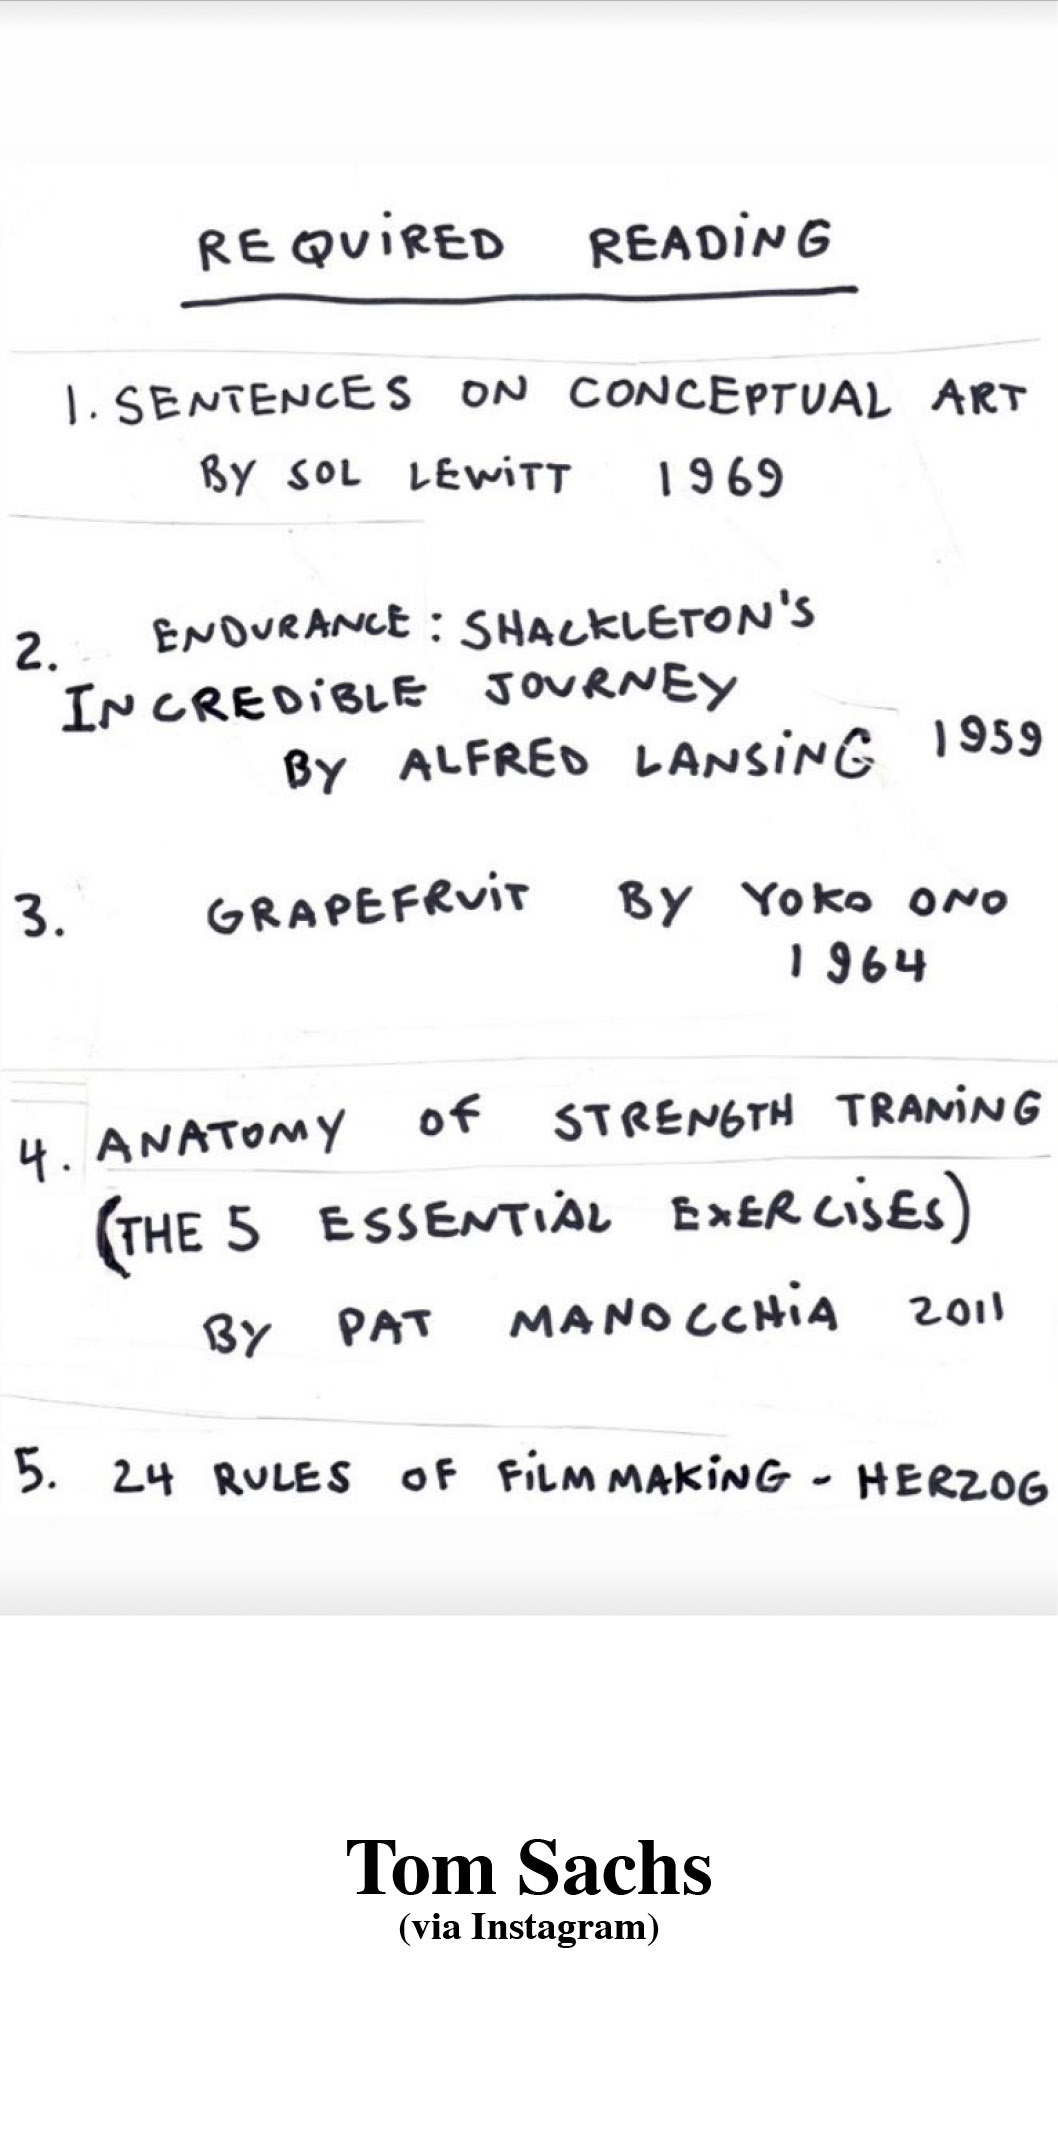 REQUiRED READiNG
1. SENTENCES ON CONCEPTUAL ART
BY SOL LEWiTT 1969
2. ENDURANCE: SHACKLETON'S
INCREDiBLE JOURNEY
BY ALFRED LANSiNG 1959
3. GRAPEFRUiT BY YOKO ONO
1964
4. ANATOMY OF STRENGTH TRANiNG
(THE 5 ESSENTiAL EXERCiSES)
BY PAT MANOCCHiA 2011
5. 24 RULES OF FiLMMAKiNG - HERZOG
Tom Sachs
(via Instagram)